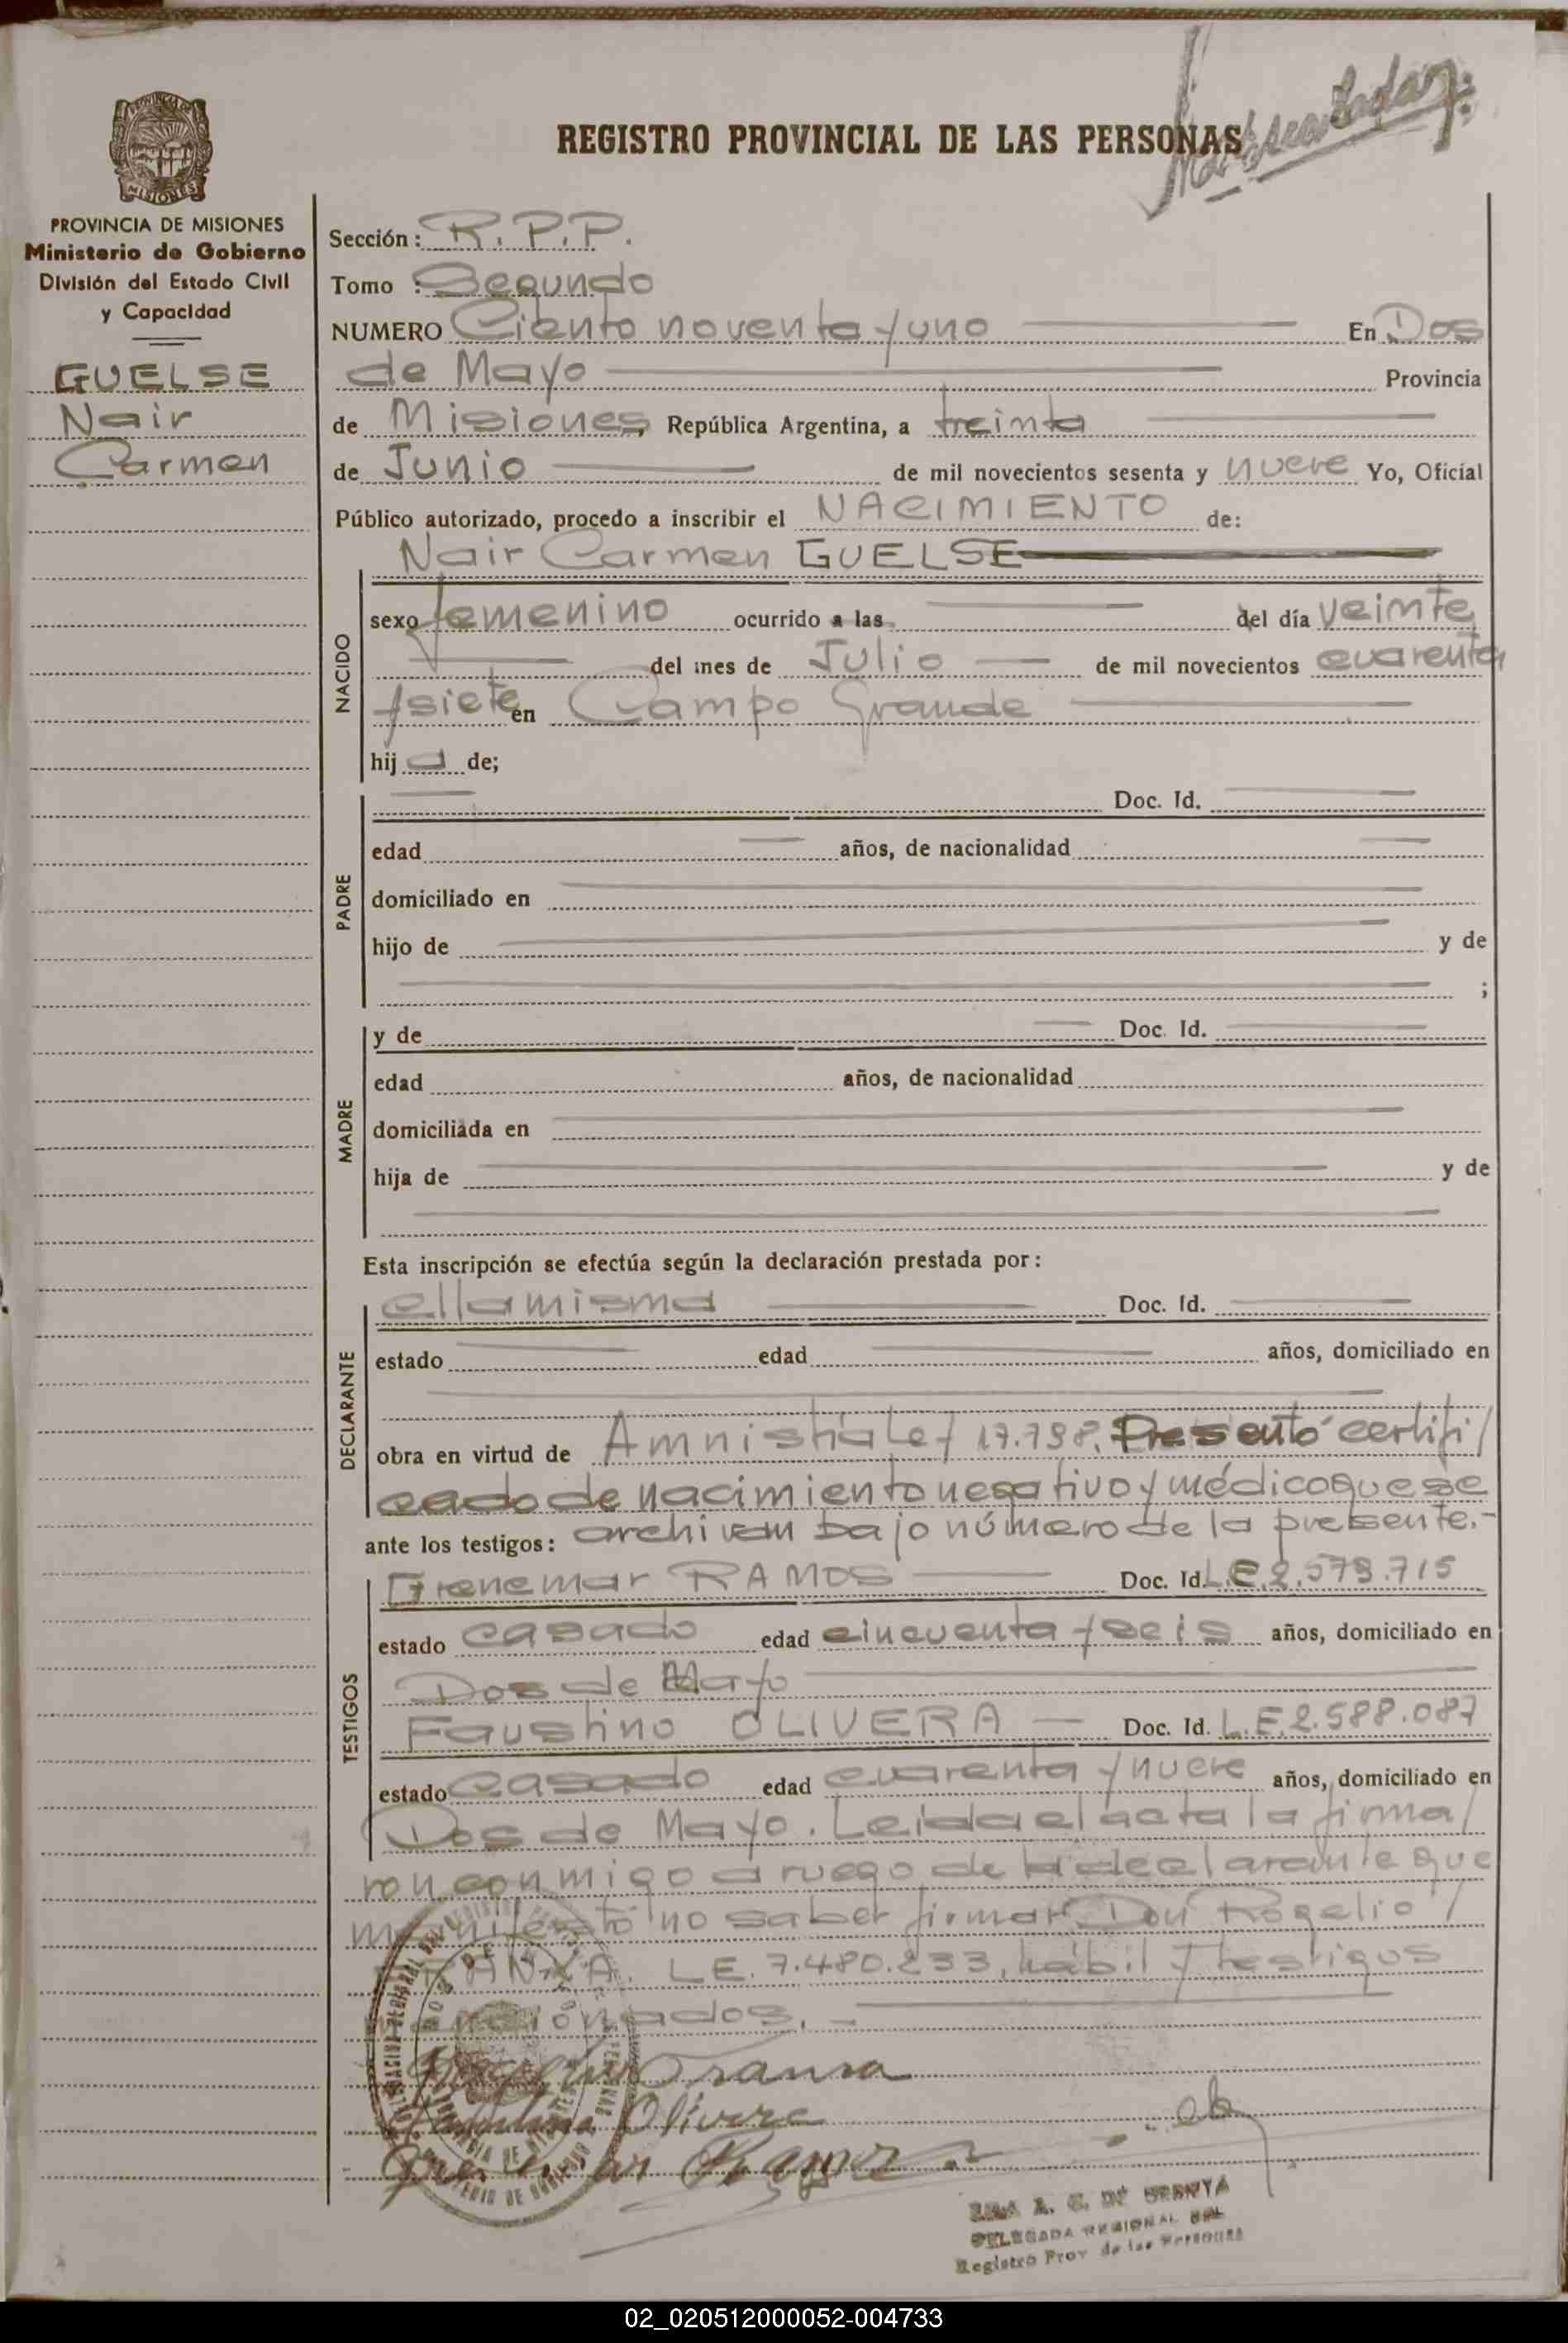 REGISTRO PROVINCIAL DE LAS PERSONAS
PROVINCIA DE MISIONES
Ministerio de Gobierno
División del Estado Civil
y Capacidad
GUELSE
Nair
Carmen
Sección: R.P.P.
Tomo : Segundo
NUMERO Ciento noventa y uno En Dos
de Mayo Provincia
de Misiones, República Argentina, a treinta
de Junio de mil novecientos sesenta y nueve Yo, Oficial
Público autorizado, procedo a inscribir el NACIMIENTO de:
Nair Carmen GUELSE
NACIDO
sexo femenino ocurrido a las del día veinte
del mes de Julio de mil novecientos cuarenta
y siete en Campo Grande
hij a de;
PADRE
Doc. Id.
edad años, de nacionalidad
domiciliado en
hijo de y de
;
MADRE
y de Doc. Id.
edad años, de nacionalidad
domiciliada en
hija de y de
Esta inscripción se efectúa según la declaración prestada por:
DECLARANTE
ella misma Doc. Id.
estado edad años, domiciliado en
obra en virtud de Amnistía Ley 17.798. Presentó certifi/
cado de nacimiento negativo y médico que se
ante los testigos: archivan bajo número de la presente.-
TESTIGOS
Grenemar RAMOS Doc. Id. L.E.2.579.715
estado casado edad cincuenta y seis años, domiciliado en
Dos de Mayo
Faustino OLIVERA — Doc. Id. L.E.2.588.087
estado casado edad cuarenta y nueve años, domiciliado en
Dos de Mayo. Leida el acta la firma/
ron conmigo a ruego de la declarante que
manifestó no saber firmar Don Rogelio /
L.E. 7.480.233, hábil y testigos
mencionados.-
Olivera
Ramos
DELEGADA REGIONAL DEL
Registro Prov de las Personas
02_020512000052-004733